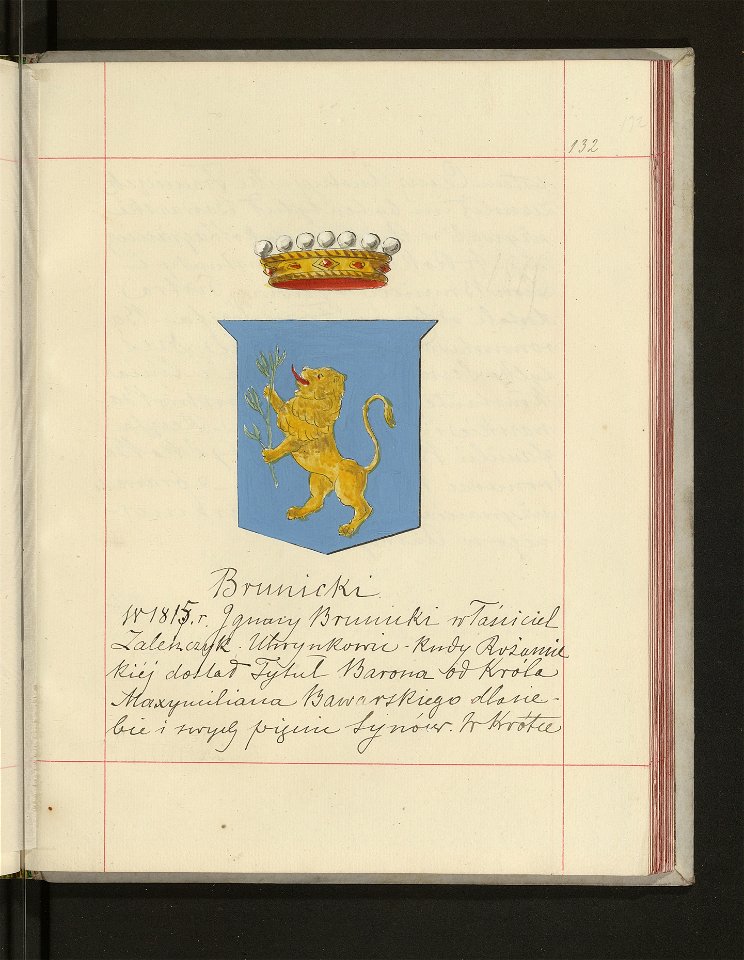 132
Brunicki
W 1815. r. Ignacy Brunicki właściciel
Zaleszczyk - Uhrynkowic - Rudy Rożanie
kiéj dostał Tytuł Barona od Króla
Maxymiliana Bawarskiego dla sie-
bie i swych pięciu Synów. W krótce